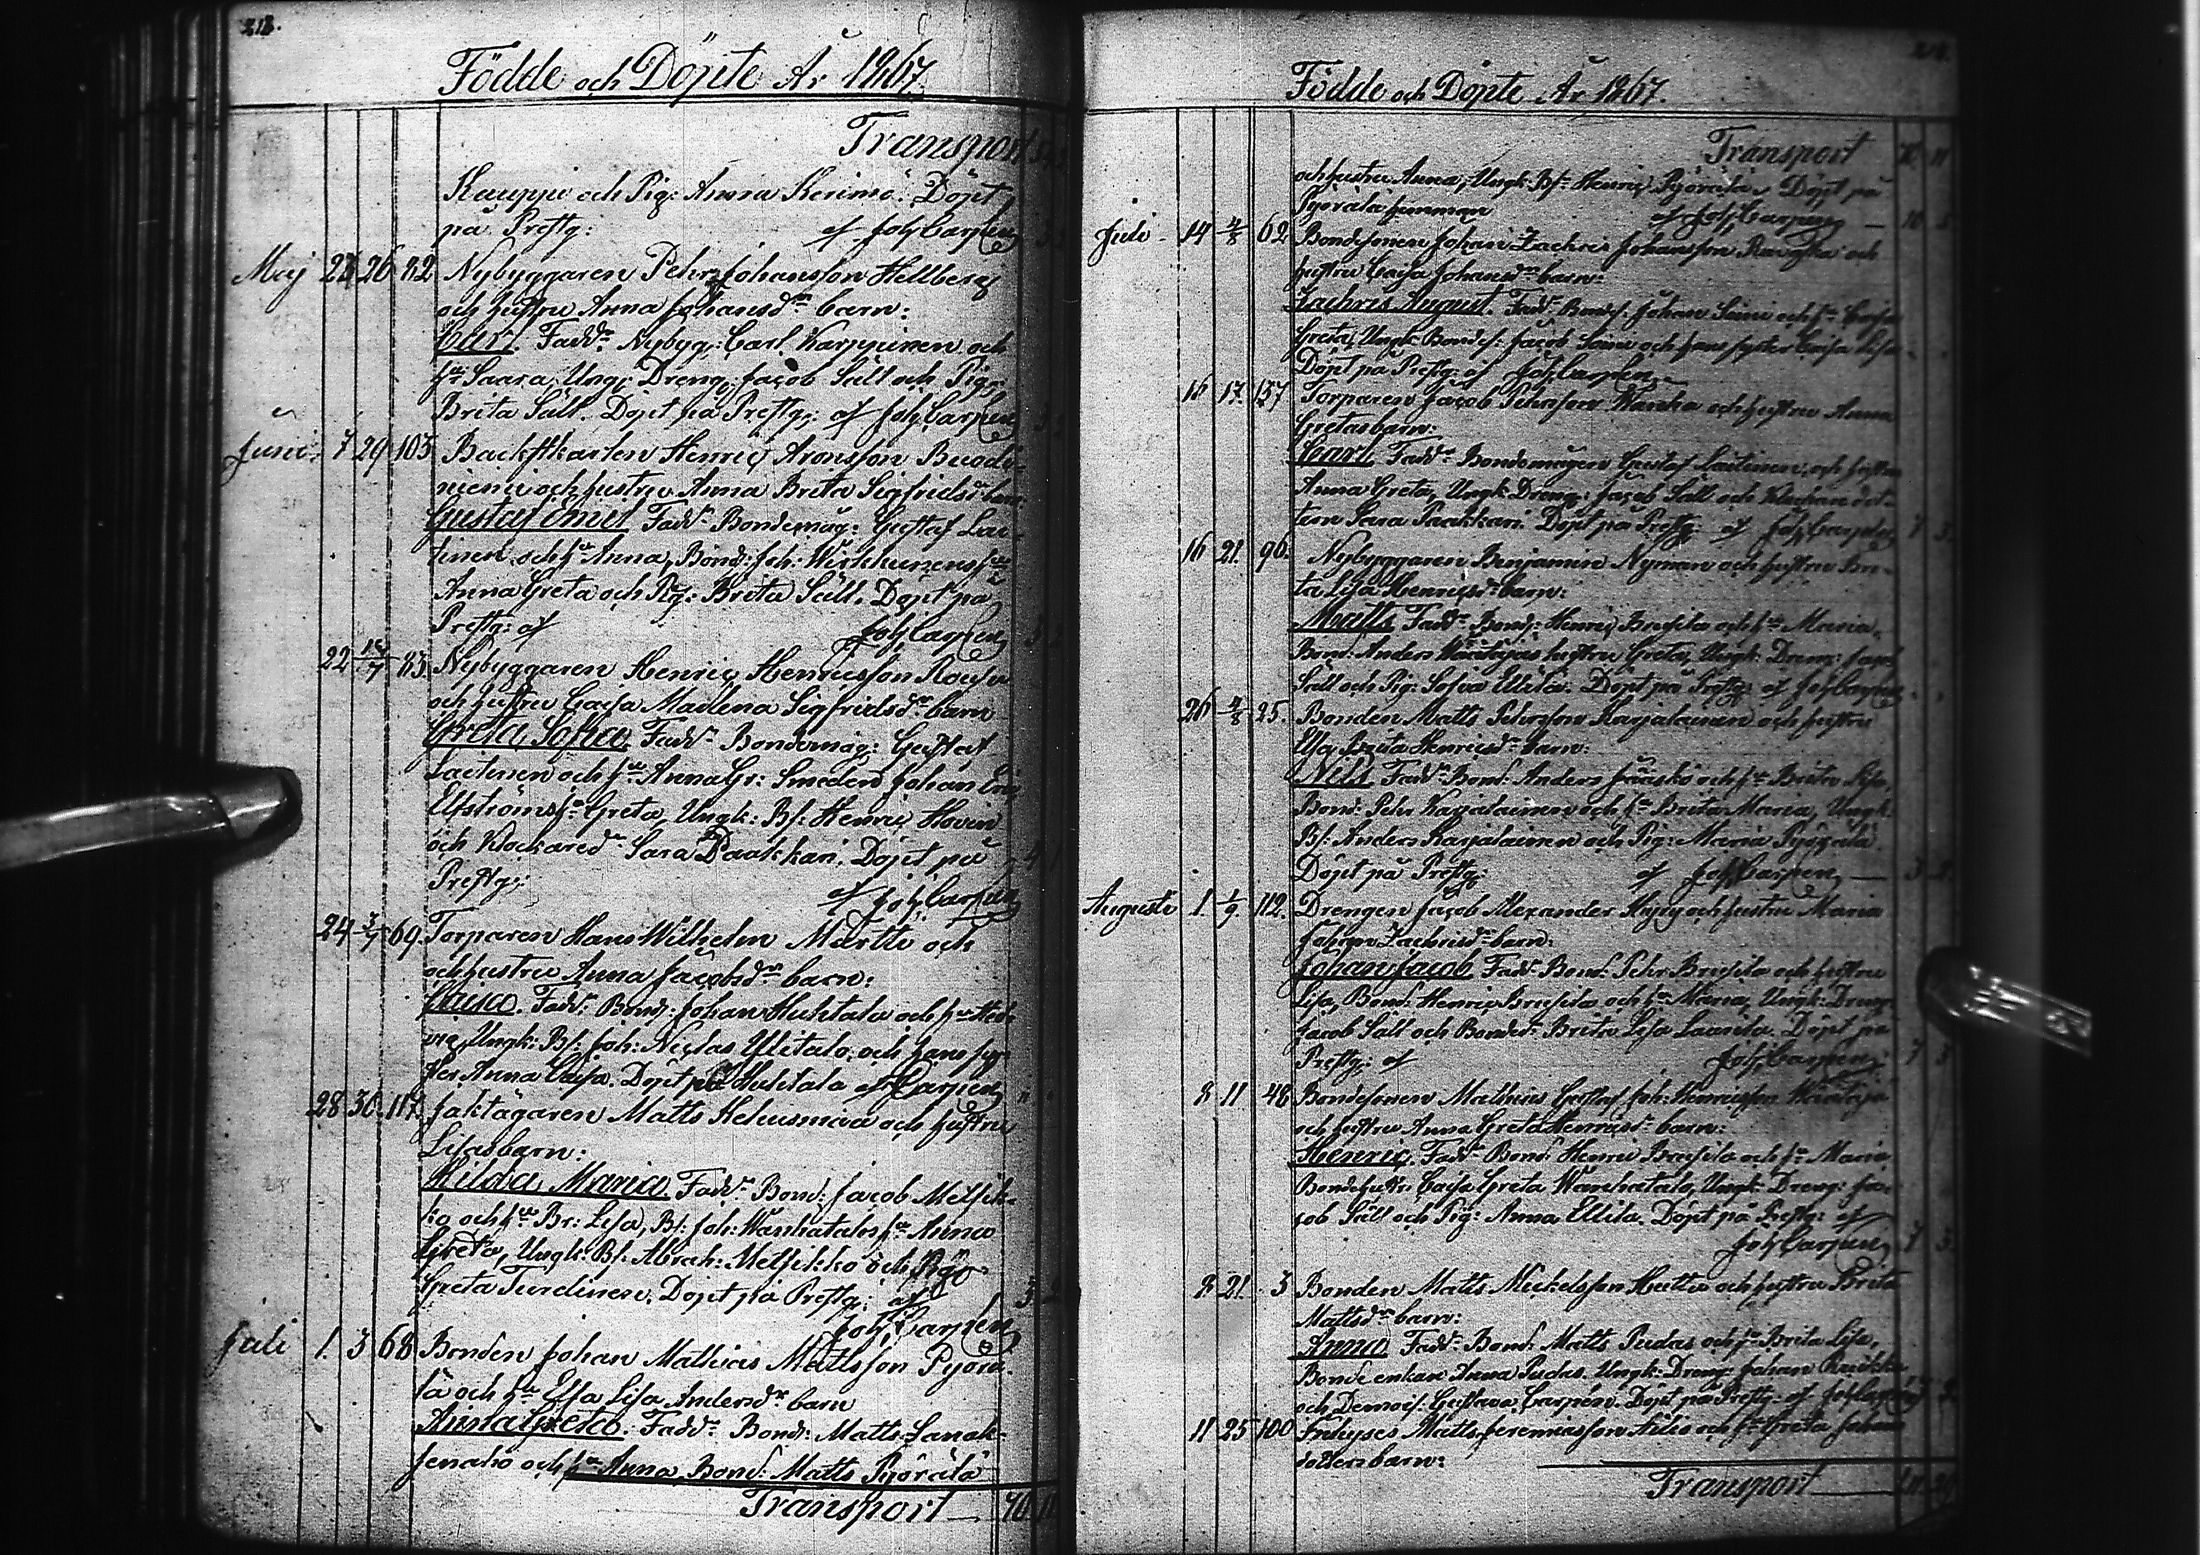 213.
Födde och Döpte År 1867.
Transport
Kauppi och Pig: Anna Kerimö. Döpt
på Prestg: af Joh, Carpen
Maj 22 26 82 Nybyggaren Pehr Johansson Hellberg
och hustru Anna Johansdr barn:
Carl. Faddr Nybyg: Carl Karppinen och
hu Saara, Ung: Dreng: Jacob Säll och Pig:
Brita Säll. Döpt på Prestg: af Joh, Carpen
Juni 7 29 103 Backstkarlen Henric Aronsson
niemi och hustru Anna Brita Sigfridsdr barn
Gustaf Emil Faddr Bondemåg: Gustaf Lau-
tinen och hu Anna, Bond: Joh: hu
Anna Greta och Pig: Brita Säll. Döpt på
Prestg: af Joh, Carpen 3
22 83. Nybyggaren Henric Henricsson
och hustru Caisa Madlena Sigfridsdr barn
Greta Sofia. Faddr Bondemåg: Gustaf
Lautinen och hu Anna Gr: Smeden Johan
Elfströms hu Greta, Ungk: Bs: Henric
och Klockaredr Sara Paakkari. Döpt på 4 1
Prestg: af Joh, Carpen
24 3/7 69. Torparen Hans Wilhelm Martti och
och hustru Anna Jacobsdr barn:
Caisa. Faddr Bond: Johan Huhtala och hu
Ungk: Bs: Joh: Niclas Ylitalo, och hans sys-
ter Anna Caisa. Döpt på Huhtala af Carpen
28 30 117. Jaktägaren Matts och hustru
Lisas barn:
Hilda Maria. Faddr Bond: Jacob Metsik-
ko och hu Br: Lisa, Bs: Joh: Wanhatalos hu Anna
Greta, Ungk: Bs: Abrah: Metsikko och Pig:
Greta Turdinen. Döpt på Prestg: af 3
Joh, Carpen
Juli 1. 3 68 Bonden Johan Mathias Mattsson Pyörä-
lä och hu Elsa Lisa Andersdr barn
Anna Greta. Faddr Bond: Matts Lanak-
senaho och hu Anna Bond: Matts Pyörälä
Transport 70 11
Födde och Döpte År 1867.
Transport 70 11
och hustru Anna, Ungk: Bs: Henric Pyörälä. Döpt på
Pyörälä hemman af Joh, Carpen 10 5
Juli 14 4/8 62 Bondesonen Johan Zachris Johansson och
hustru Caisa Johansdr barn:
Zachris August. Faddr Bond: Johan och hu Caisa
Greta, Ungk: Bondes: Jacob och hans syster Caisa Lisa
Döpt på Prestg: af Joh, Carpen
16 17. 157 Torparen Jacob Pehrsson och hustru Anna
Gretas barn:
Carl. Faddr Bondemågen Gustaf Lautinen, och hustru
Anna Greta, Ungk: Dreng: Jacob Säll och Klockaredot-
tern Sara Paakkari. Döpt på Prestg: af Joh, Carpen 7 3.
16 21. 96. Nybyggaren Benjamin Nyman och hustru Bri-
ta Lisa Henricsdr barn:
Matts. Faddr Bond: Henric Brusila och hu Maria,
Bond: Anders hustru Greta, Ungk: Dreng: Jacob
Säll och Pig: Sofia Ellilä. Döpt på Prestg: af Joh, Carpen
26 4/8 25. Bonden Matts Pehrsson Karjalainen och hustru
Elsa Brita Henricsdr barn:
Nils. Faddr Bond: Anders Jääskö och hu Brita Lisa,
Bond: Pehr Karjalainen och hu Brita Maria, Ungk:
Bs: Anders Karjalainen och Pig: Maria Pyörälä.
Döpt på Prestg: af Joh, Carpen 3 2.
Augusti 1. 1/9. 112. Drengen Jacob Alexander och hustru Maria
Johan Zachrisdr barn:
Johan Jacob. Faddr Bond: Pehr Brusila och hustru
Lisa, Bond: Henric Brusila och hu Maria, Ungk: Dreng:
Jacob Säll och Bondedr Brita Lisa Laurila. Döpt på
Prestg: af Joh, Carpen 7 3
8 11 48 Bondesonen Mathias Gustaf Joh: Henricsson
och hustru Anna Greta Henricsdr barn:
Henric. Faddr Bond: Henric Brusila och hu Maria,
Bondehustr: Caisa Greta Wanhatalo, Ungk: Dreng: Ja-
cob Säll och Pig: Anna Ellilä. Döpt på Prestg: af
Joh, Carpen 7 3.
8 21. 3 Bonden Matts Mickelsson och hustru Brita
Mattsdr barn:
Anna. Faddr Bond: Matts Pudas och hu Brita Lisa,
Bonde enkan Anna Pudas. Ungk: Dreng: Johan
och Demois: Gustava Carpén. Döpt på Prestg: af Joh, Carpen
11 25 100 Inhyses Matts Jeremiasson och hu Greta Johans
dotters barn:
Transport